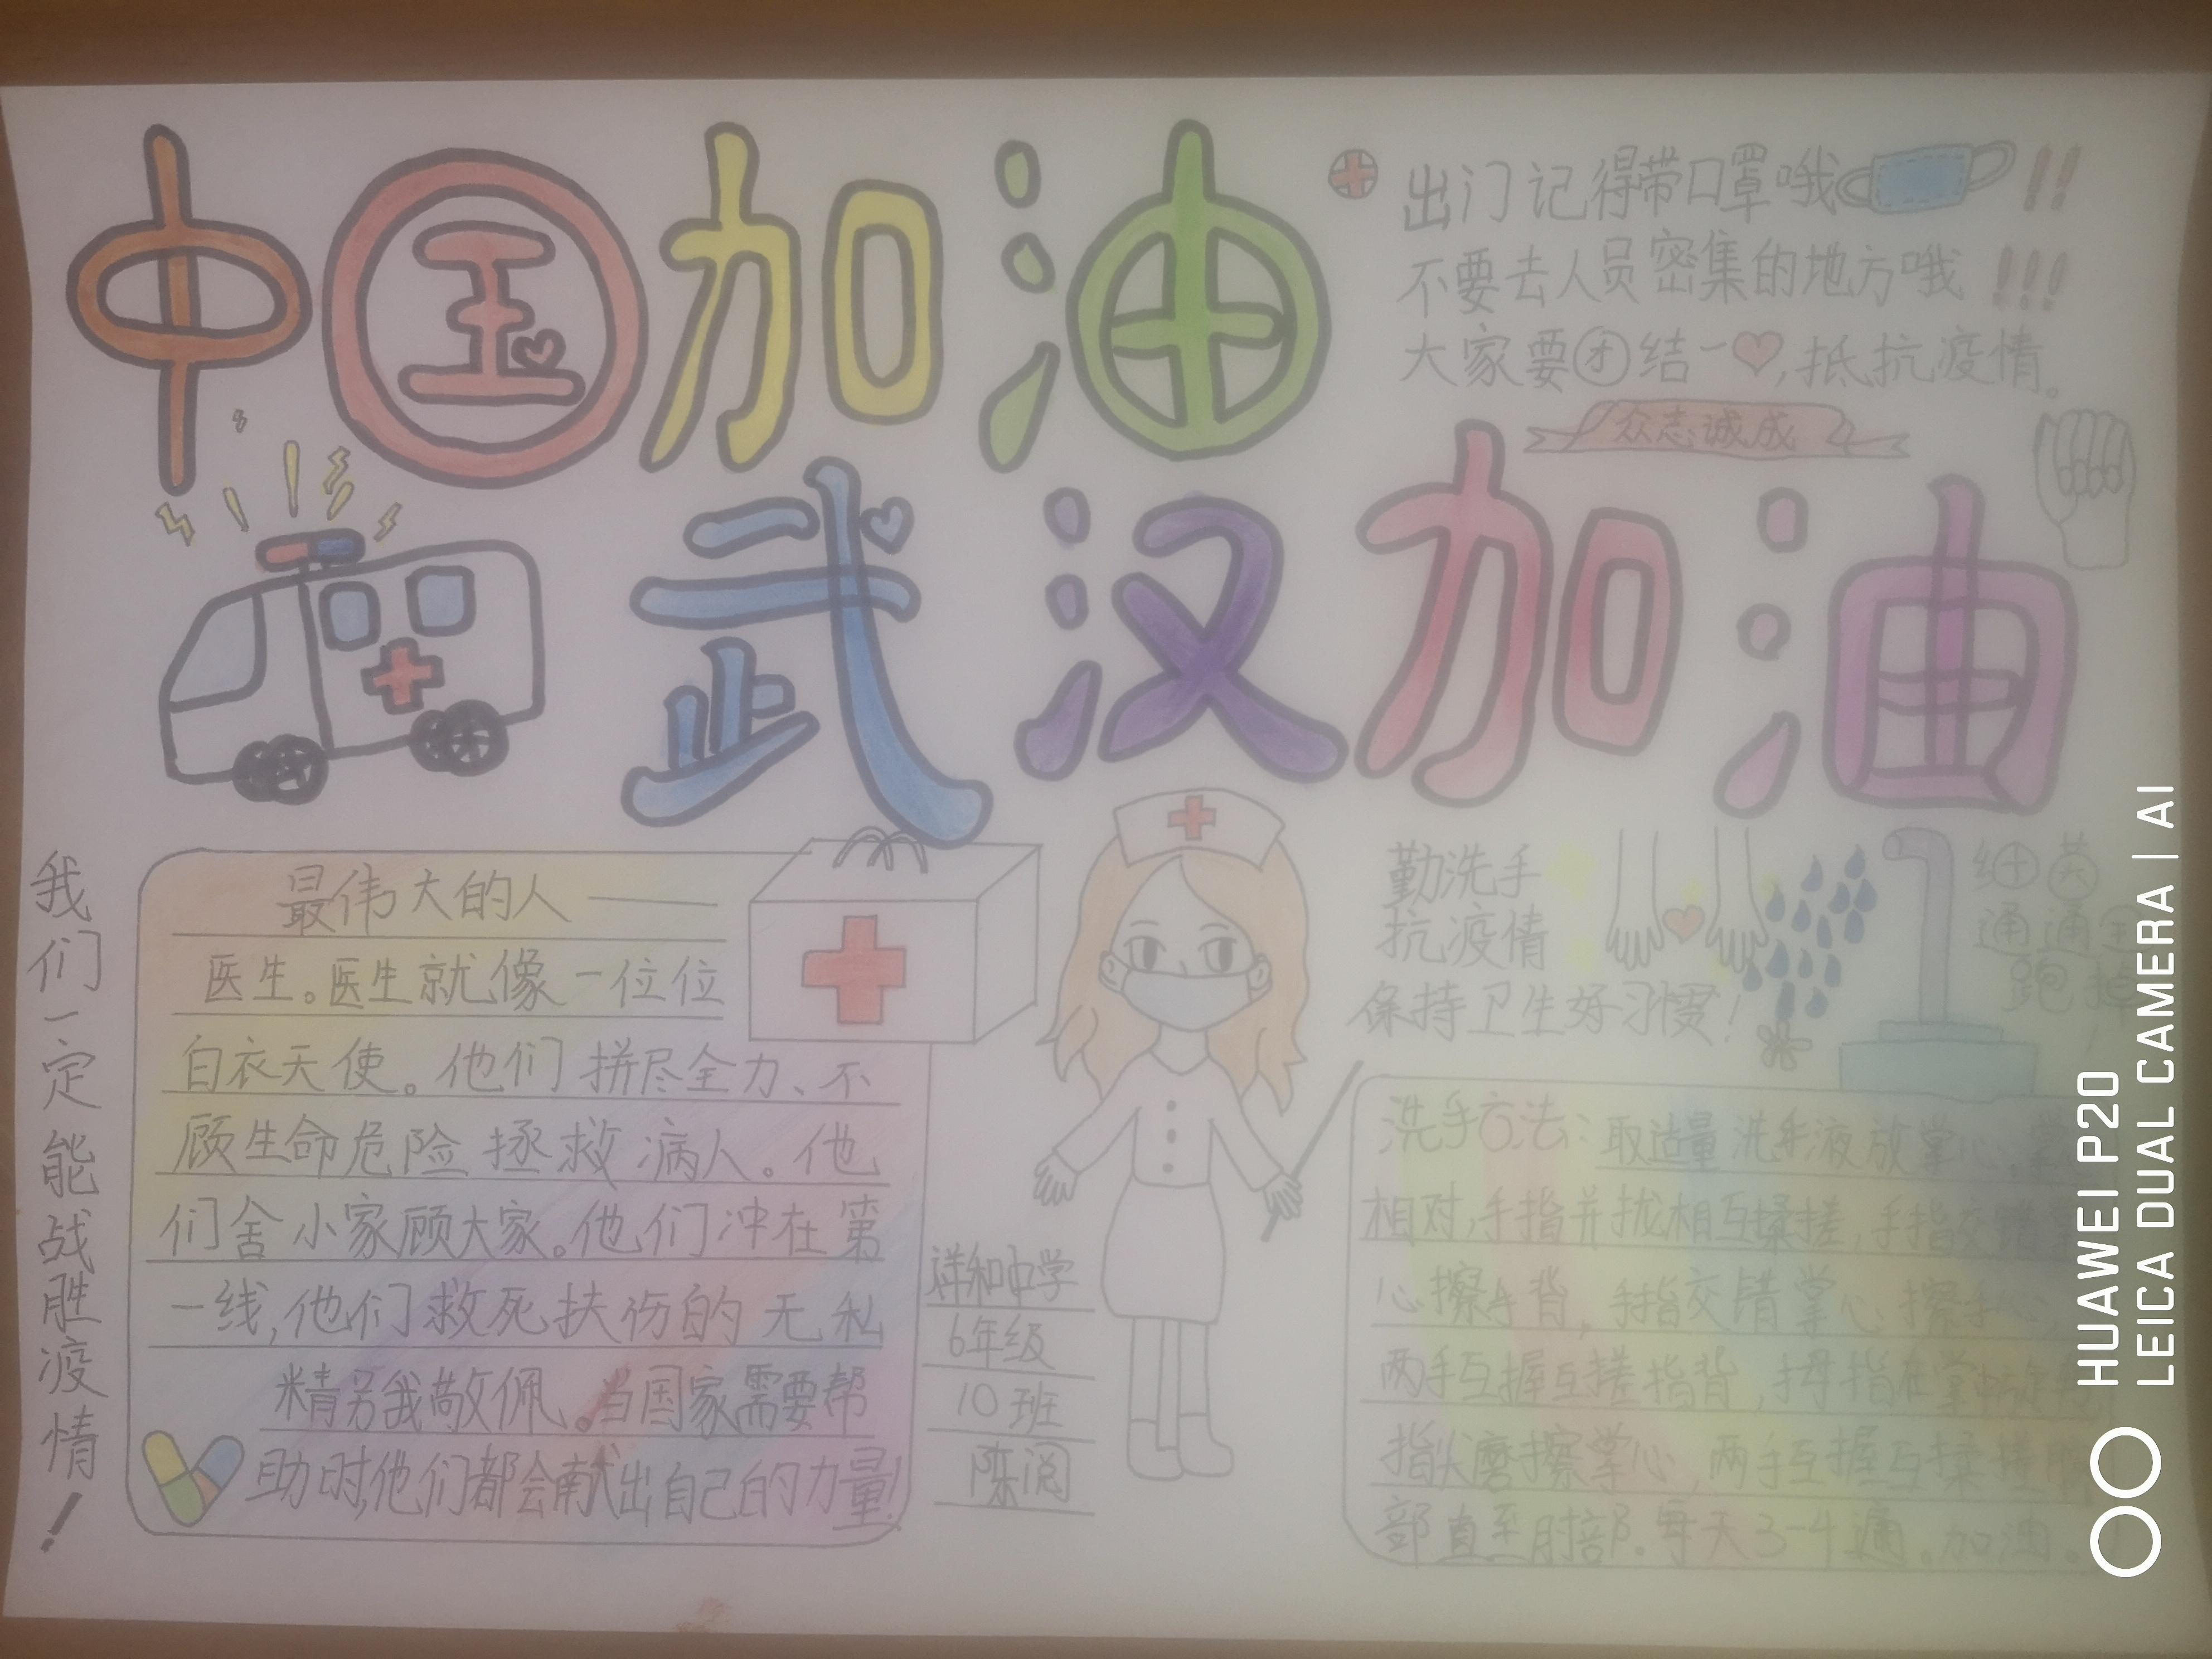 中国加油
出门记得带口罩哦!!
不要去人员密集的地方哦!!!
大家要团结一,抵抗疫情。
众志诚成
武汉加油
我们一定能战胜疫情!
最伟大的人——
医生。医生就像一位位
白衣天使。他们拼尽全力、不
顾生命危险拯救病人。他
们舍小家顾大家。他们冲在第
一线,他们救死扶伤的无私
精另我敬佩。当国家需要帮
助时,他们都会献出自己的力量!
祥和中学
6年级
10班
陈阅
勤洗手
抗疫情
保持卫生好习惯!
细菌
通通
跑掉
洗手方法:取适量洗手液放掌心。掌
相对,手指并拢相互揉搓,手指交错掌
心擦手背,手指交错掌心擦手心,
两手互握互搓指背,拇指在掌中
指尖磨擦掌心,两手互握互揉搓
部直至肘部.每天3-4遍。加油。
HUAWEI P20
LEICA DUAL CAMERA | AI